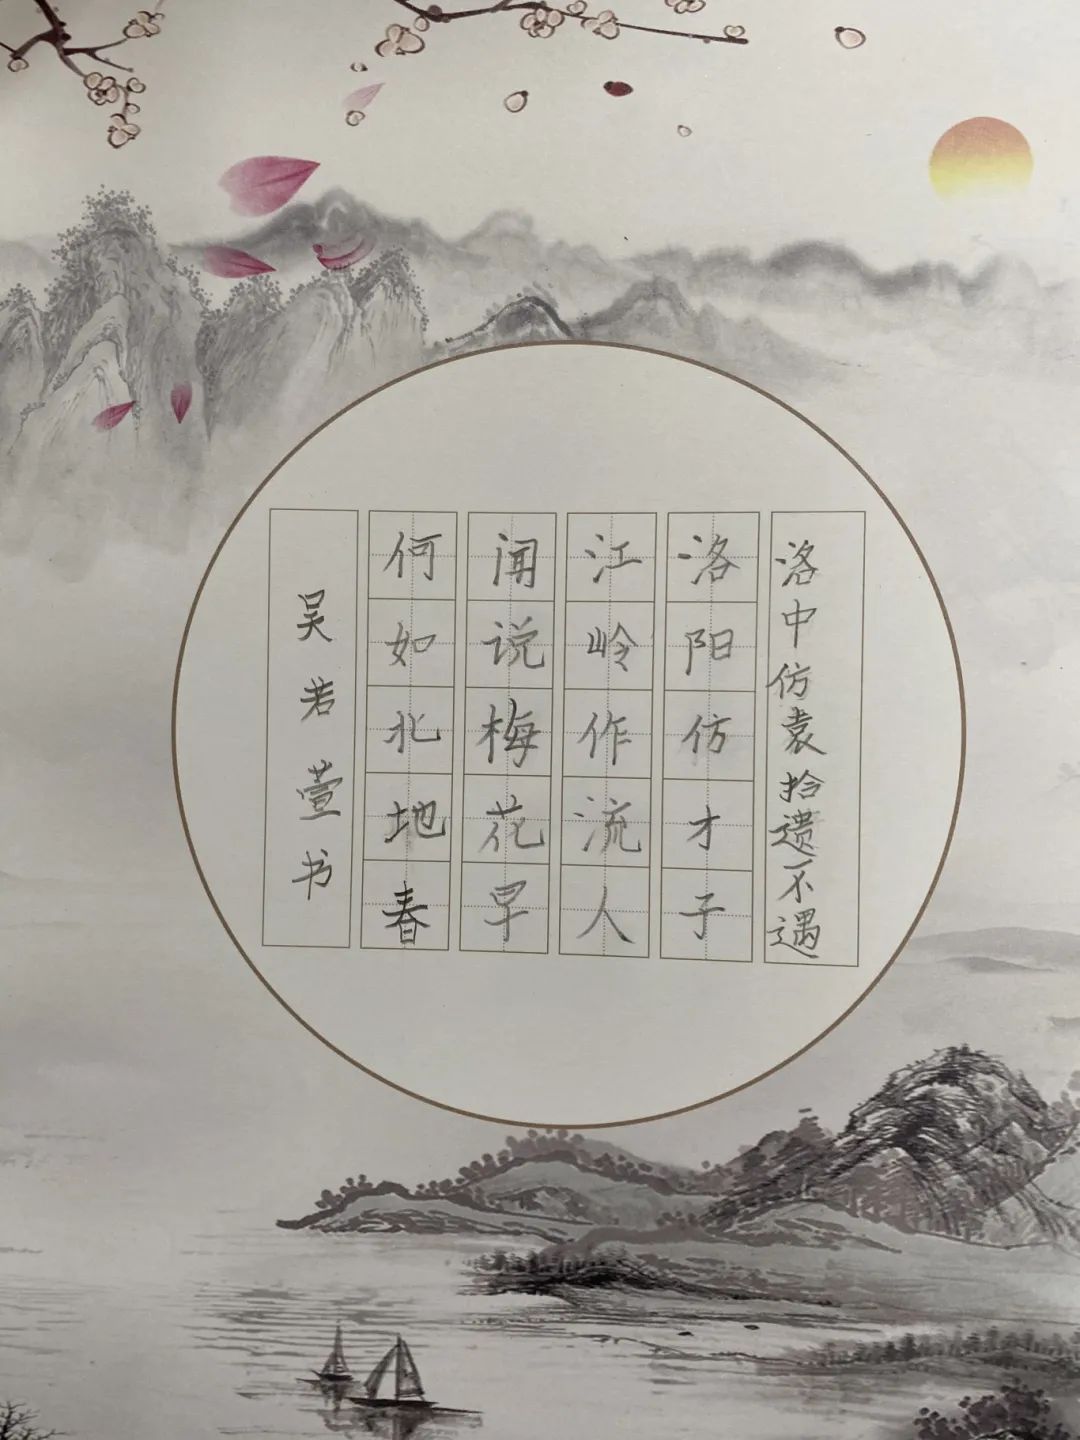 洛中仿袁拾遗不遇
洛阳仿才子
江岭作流人
闻说梅花早
何如北地春
吴若萱书